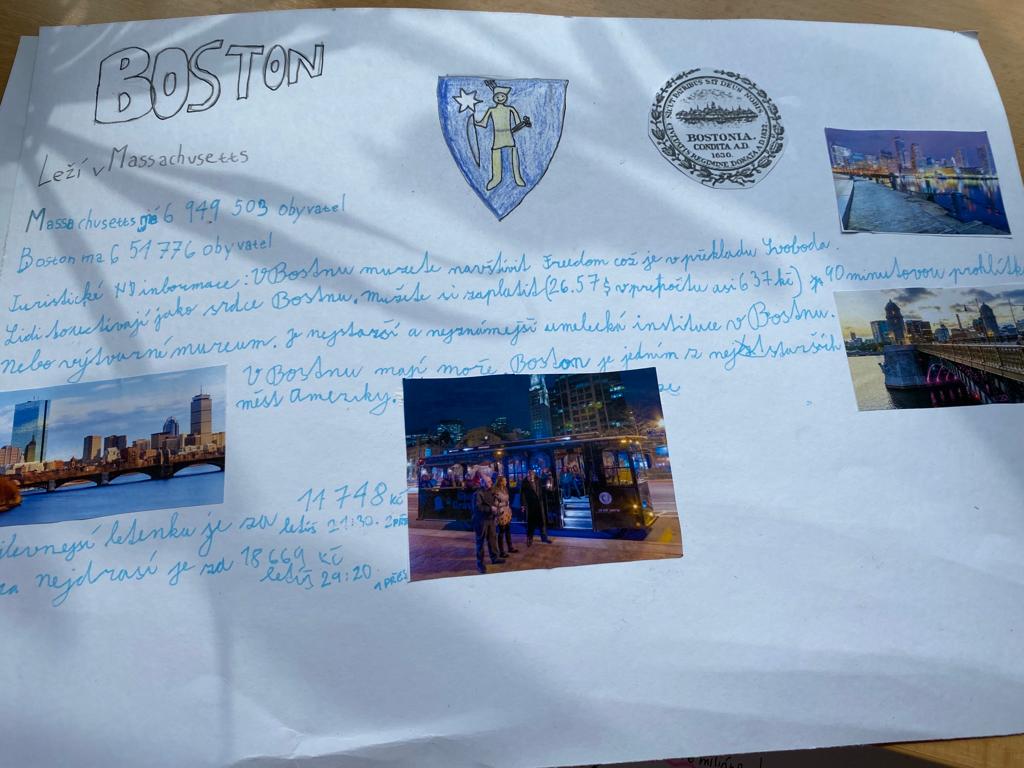 BOSTON
Leží v Massachusetts
Massachusetts má 6 949 503 obyvatel
Boston ma 6 51 776 obyvatel
BOSTONIA.
CONDITA A.D.
1630.
SICUT PATRIBUS SIT DEUS NOBIS
CIVITATIS REGIMINE DONATA A.D. 1822.
Turistické informace: V Bostnu muzete navštívit Freedom což je v překladu Svoboda.
Lidi to jako srdce Bostnu. můžete si zaplatit (26.57 $ v přepočtu asi 637 kč) 90 minutovou prohlítk
Nebo výtvarné mureum. Je nejstarší a nejznámejší umelecká instituce v Bostnu.
V Bostnu mají moře. Boston je jedním z nejstarších
měst Ameriky.
11 748 kč
ilevnejsí letenku je za letíš 21:30. 2 PŘES
za nejdrasí je za 18 669 kč
letíš 29:20 1 PŘES